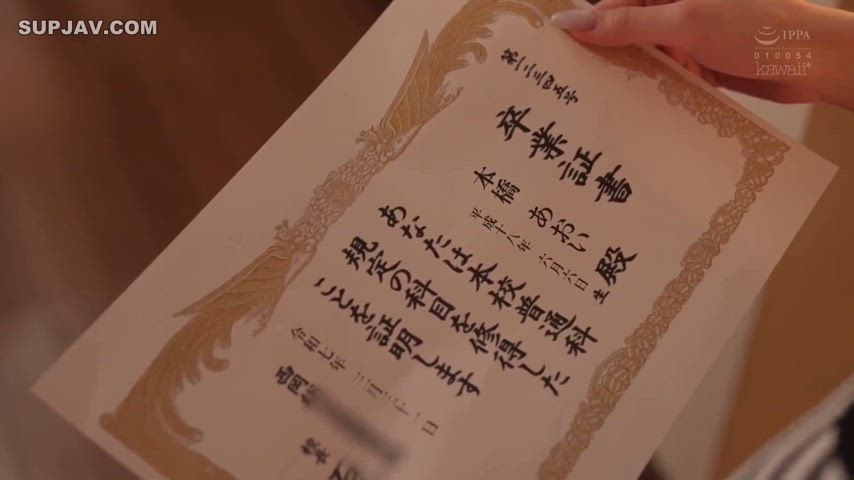 SUPJAV.COM
IPPA
010054
kawaii*
第一二三四五号
卒業証書
本橋 あおい 殿
平成十八年 六月六日生
あなたは本校普通科
規定の科目を修得した
ことを証明します
令和七年 三月三十一日
校長